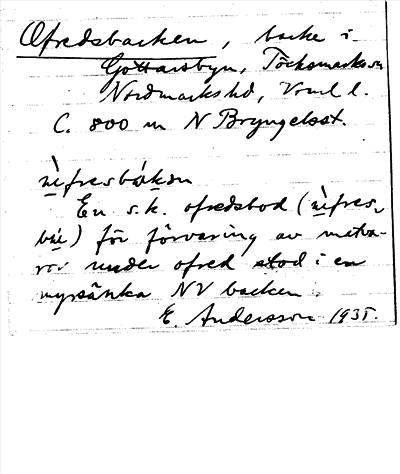 Ofredsbacken, backe i
Gottarsbyn, Töcksmarks sn
Nordmarks hd, Vrml l.
C. 800 m N Bryngelsst.
ùfresbákən
En s.k. ofredsbod (ùfres-
búɛ) för förvaring av matva-
ror under ofred stod i en
myrsänka NV backen.
E. Andersson 1935.